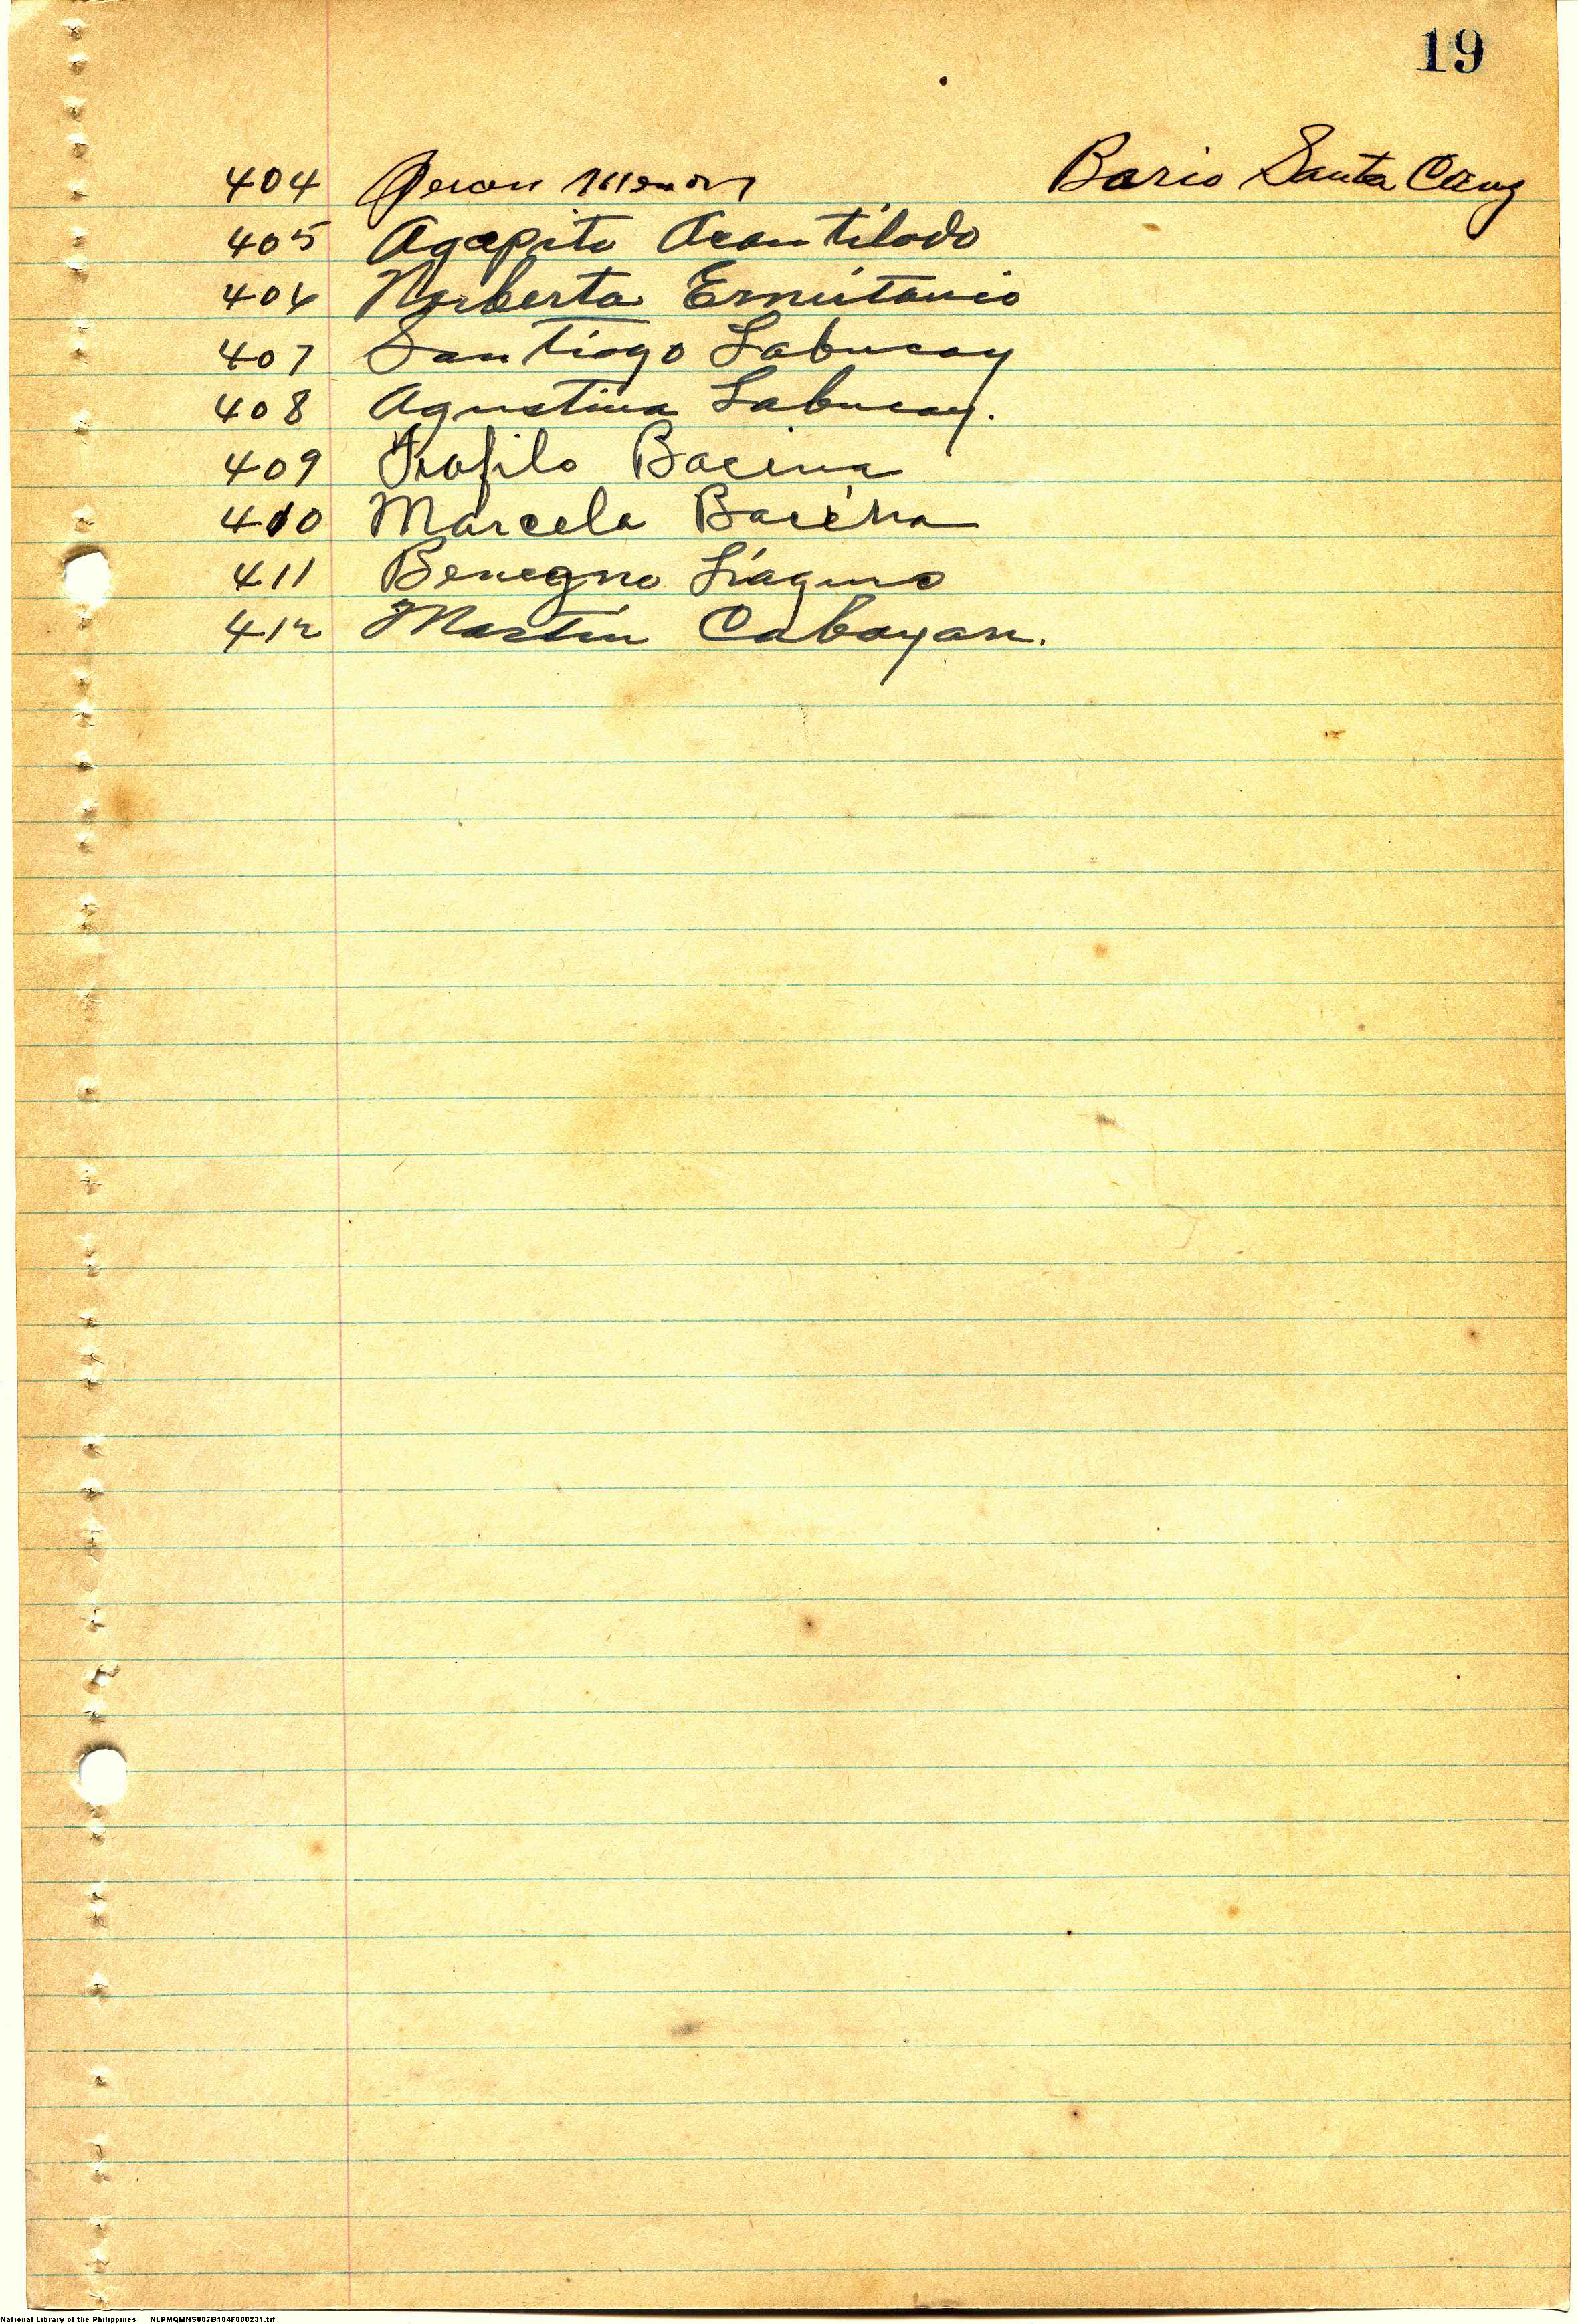 19
404 Bario Santa Cruz
405 Agapito Acantilado
406 Norberta Ermitanio
407 Santiago Labucay
408 Agustina Labucay.
409 Trofilo Bacina
410 Marcela Bacina
411 Benegno Liaguno
412 Martin Cabayan.
National Library of the Philippines NLPMQMNS007B104F000231.tif